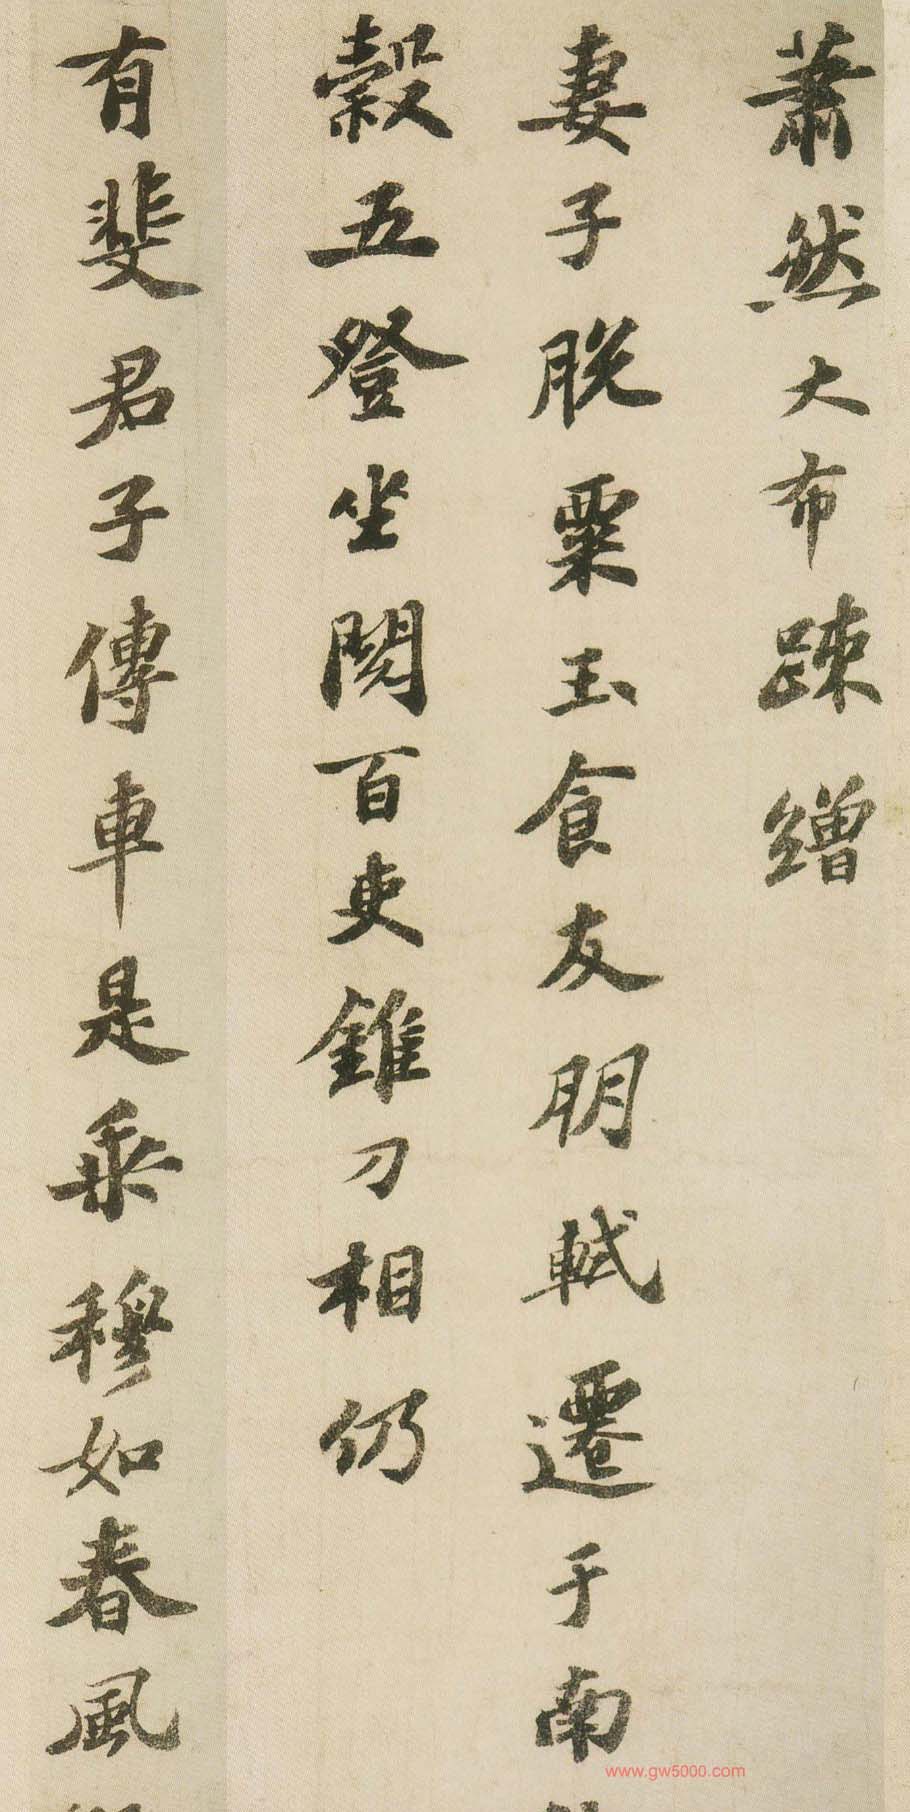 蕭然大布疎繒
妻子脱粟玉食友朋軾遷于南
穀五登坐閱百吏錐刀相仍
有斐君子傳車是乘穆如春風
www.gw5000.com